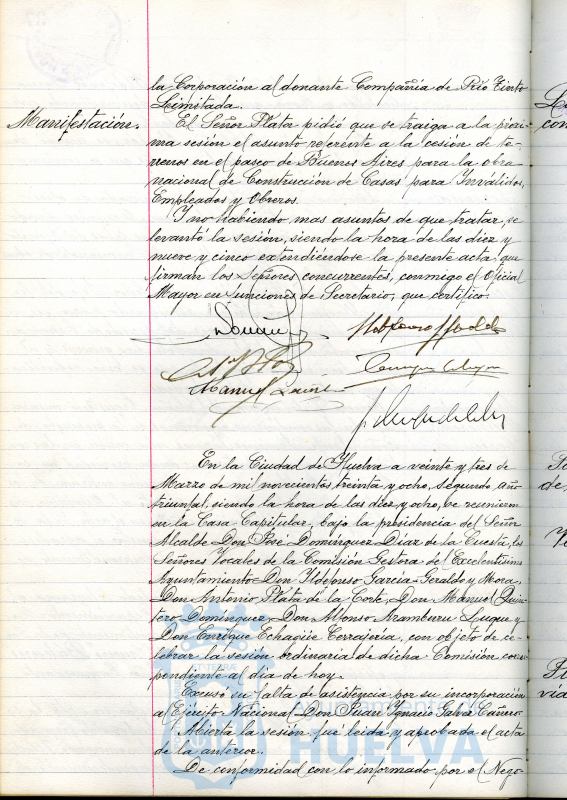 la Corporación al donante Compañia de Rio Tinto
Limitada.
Manifestación.
El Señor Plata pidió que se traiga a la próxi-
ma sesión el asunto referente a la cesión de te-
rrenos en el paseo de Buenos Aires para la obra
nacional de Construcción de Casas para Inválidos,
Empleados y Obreros.
Y no habiendo mas asuntos de que tratar, se
levantó la sesión, siendo la hora de las diez y
nueve y cinco extendiéndose la presente acta, que
firman los Señores concurrentes, conmigo el Oficial
Mayor en funciones de Secretario, que certifico.
Manuel
En la Ciudad de Huelva a veinte y tres de
Marzo de mil novecientos treinta y ocho, segundo año
triunfal, siendo la hora de las diez y ocho, se reunieron
en la Casa Capitular, bajo la presidencia del Señor
Alcalde Don José Dominguez Diaz de la Cuesta, los
Señores Vocales de la Comisión Gestora del Excelentísimo
Ayuntamiento Don Ildefonso Garcia-Geraldo y Mora,
Don Antonio Plata de la Corte, Don Manuel Quin-
tero Dominguez, Don Alfonso Aramburu Luque y
Don Enrique Echagüe Torrajeria, con objeto de ce-
lebrar la sesión ordinaria de dicha Comisión corres-
pondiente al dia de hoy.
Excusó su falta de asistencia por su incorporación
al Ejército Nacional Don Juan Ignacio Galvez Cañero.
Abierta la sesión fue leida y aprobada el acta
de la anterior.
De conformidad con lo informado por el Nego-
Ayuntamiento de
HUELVA